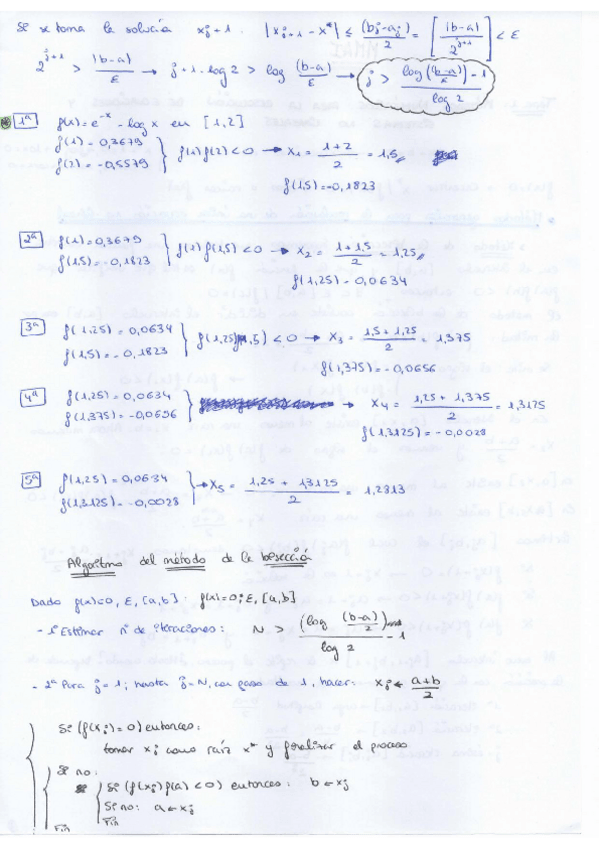 Si se toma la solución x_{j+1} : |x_{j+1} - x*| ≤ (b_j - a_j)/2 = [(b-a)/2^{j+1}] < ε
2^{j+1} > (b-a)/ε → j+1 · log 2 > log (b-a)/ε → j > (log((b-a)/ε) - 1)/log 2
1ª f(x) = e^{-x} - log x en [1,2]
f(1) = 0,3679
f(2) = -0,5579 } f(1)f(2) < 0 → x₁ = (1+2)/2 = 1,5
f(1,5) = -0,1823
2ª f(1) = 0,3679
f(1,5) = -0,1823 } f(1)f(1,5) < 0 → x₂ = (1+1,5)/2 = 1,25
f(1,25) - 0,0634
3ª f(1,25) = 0,0634
f(1,5) = -0,1823 } f(1,25)f(1,5) < 0 → x₃ = (1,5+1,25)/2 = 1,375
f(1,375) = -0,0656
4ª f(1,25) = 0,0634
f(1,375) = -0,0656 } → x₄ = (1,25+1,375)/2 = 1,3125
f(1,3125) = -0,0028
5ª f(1,25) = 0,0634
f(1,3125) = -0,0028 } → x₅ = (1,25+1,3125)/2 = 1,2813
Algoritmo del método de la bisección
Dado f(x)=0, ε, [a,b] : f(x)=0; ε, [a,b]
- 1º Estimar nº de iteraciones: N > (log (b-a)/2) - 1 / log 2
- 2º Para j=1; hasta j=N, con paso de 1, hacer: x_j ← (a+b)/2
Si (f(x_j) = 0) entonces:
tomar x_j como raíz x* y finalizar el proceso
Si no:
Si (f(x_j) f(a) < 0) entonces: b ← x_j
Si no: a ← x_j
Fin Fin